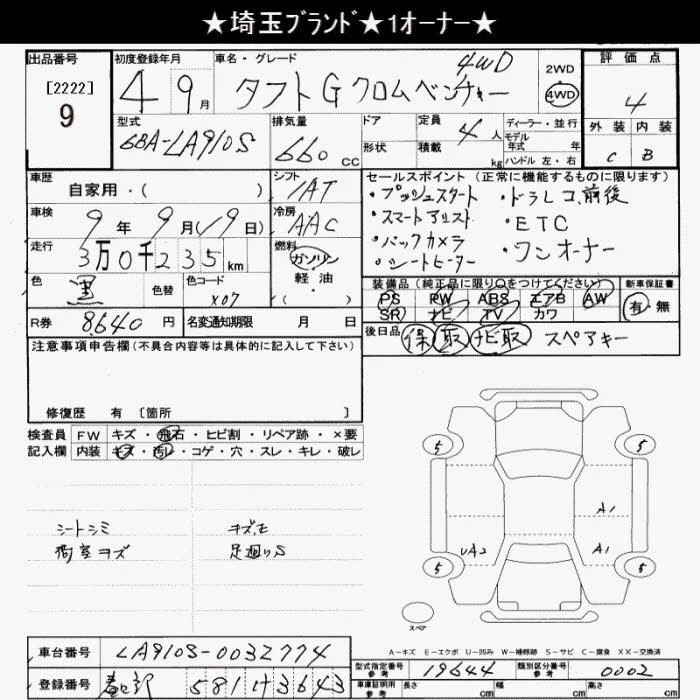 ★埼玉ﾌﾞﾗﾝﾄﾞ★1オーナー★
出品番号
[2222]
9
初度登録年月
4 9月
車名・グレード
タフト G クロムベンチャー 4WD
2WD
4WD
評価点
4
外装 内装
C B
型式
6BA-LA910S
排気量
660 CC
ドア
形状
定員
4 人
積載
kg
ディーラー・並行
モデル
年式 年
ハンドル 左・右
車歴
自家用・( )
シフト
IAT
車検
9年 9月(19日)
冷房
AAC
走行
3万0千235km
燃料
ガソリン
軽油
・( )
色
黒
色替
色コード
X07
R券
8,640 円
名変通知期限 月 日
セールスポイント (正常に機能するものに限ります)
・プッシュスタート ・ドラレコ前後
・スマートアシスト ・ETC
・バックカメラ ・ワンオーナー
・シートヒーター
装備品(純正品に限り○をつけてください)
PS PW ABS エアB AW
SR ナビ TV カワ
新車保証書
有・無
後日品
保 取 ナビ取 スペアキー
注意事項申告欄(不具合内容等は具体的に記入して下さい)
修復歴 有 [箇所 ]
検査員
記入欄
FW キズ・飛石・ヒビ割・リペア跡・×要
内装 キズ・汚レ・コゲ・穴・スレ・キレ・破レ
シートシミ
荷室キズ
キズ、E
足廻りS
5
5
5
5
A1
A1
UA2
スペア
A-キズ E-エクボ U-凹み W-補修跡 S-サビ C-腐食 XX-交換済
車台番号
LA910S-0032774
登録番号
春日部 581 け 3643
型式指定番号
参考
19644
類別区分番号
参考
0002
車庫証明用
参考
長さ cm
幅 cm
高さ cm